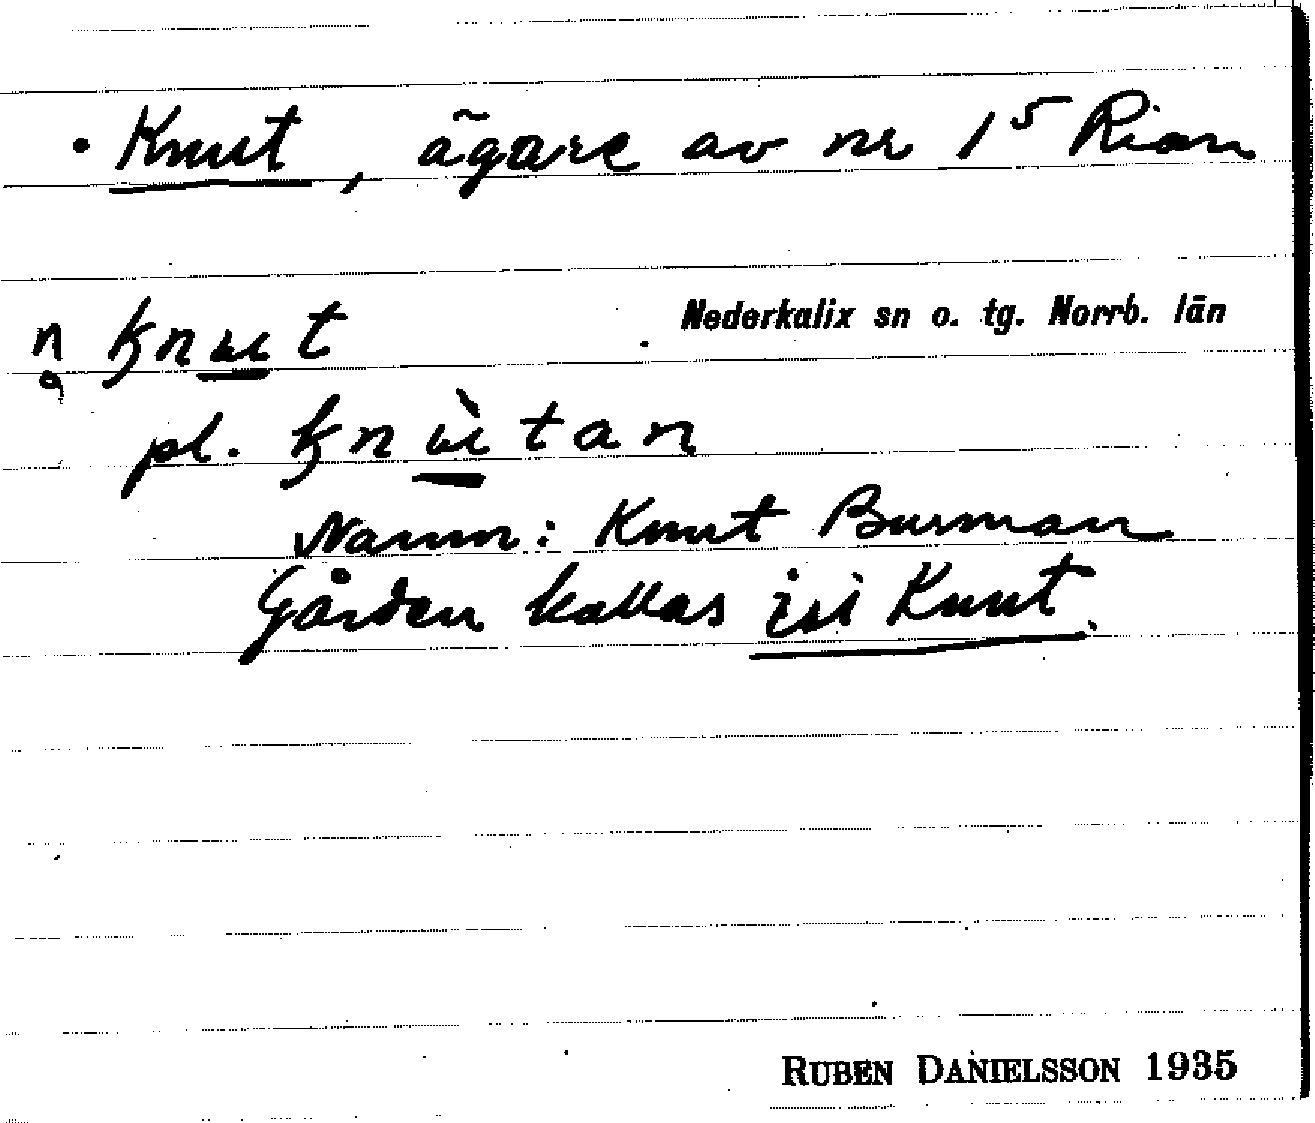 • Knut, ägare av nr 1⁵ Rian
Nederkalix sn o. tg. Norrb. län
n̥ knut
pl. knùtan
Namn: Knut Burman
Gården kallas isi Knut.
RUBEN DANIELSSON 1935